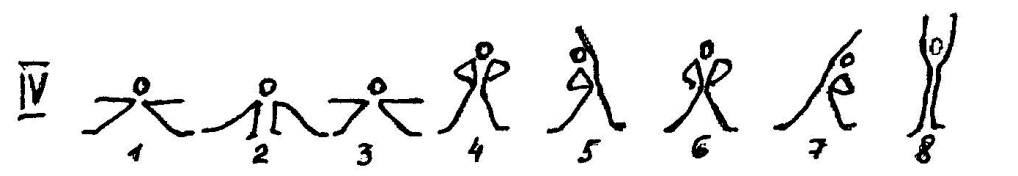 IV
1 2 3 4 5 6 7 8